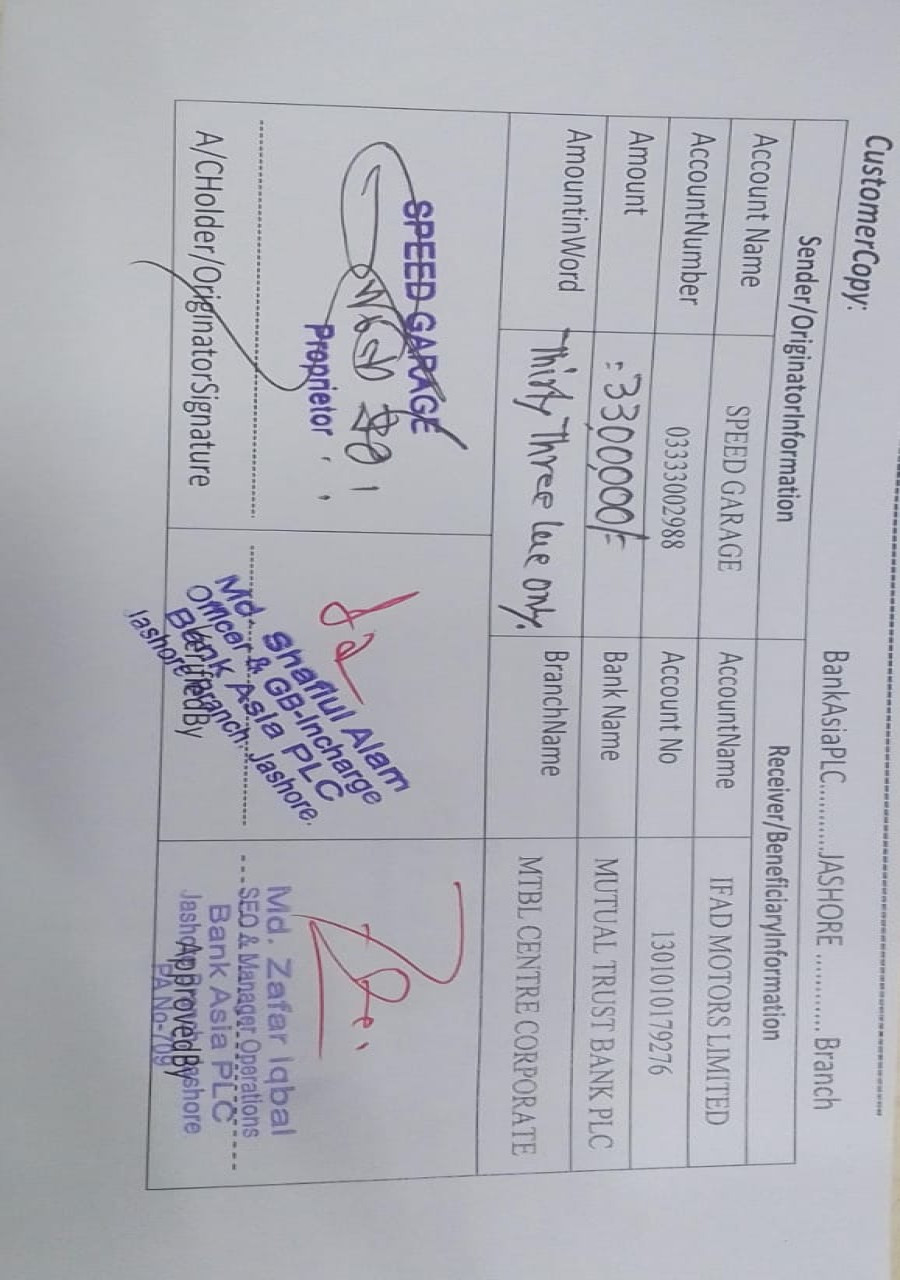 CustomerCopy:
BankAsiaPLC..........JASHORE ............ Branch
Sender/OriginatorInformation Receiver/BeneficiaryInformation
Account Name SPEED GARAGE AccountName IFAD MOTORS LIMITED
AccountNumber 03333002988 Account No 1301010179276
Amount : 3300,000/- Bank Name MUTUAL TRUST BANK PLC
AmountinWord Thirty Three lac only. BranchName MTBL CENTRE CORPORATE
SPEED GARAGE
Proprietor
A/CHolder/OriginatorSignature
Md. Shafiul Alam
Officer & GB-Incharge
Bank Asia PLC
Jashore Branch, Jashore.
VerifiedBy
Md. Zafar Iqbal
SEO & Manager Operations
Bank Asia PLC
Jashore Branch, Jashore
PA No-709
ApprovedBy